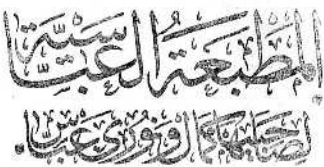 المطبعة العباسية
لصاحبها كمال و فوزى عباس